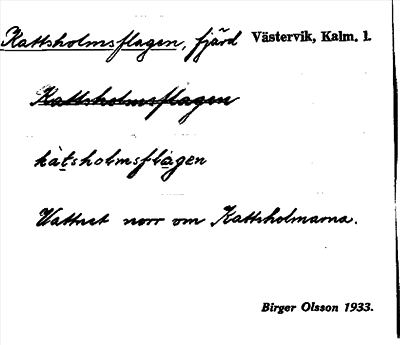 Kattsholmsflagen, fjärd Västervik, Kalm. l.
Kattsholmsflagen
kàtsholmsflàgen
Vattnet norr om Kattsholmarna.
Birger Olsson 1933.